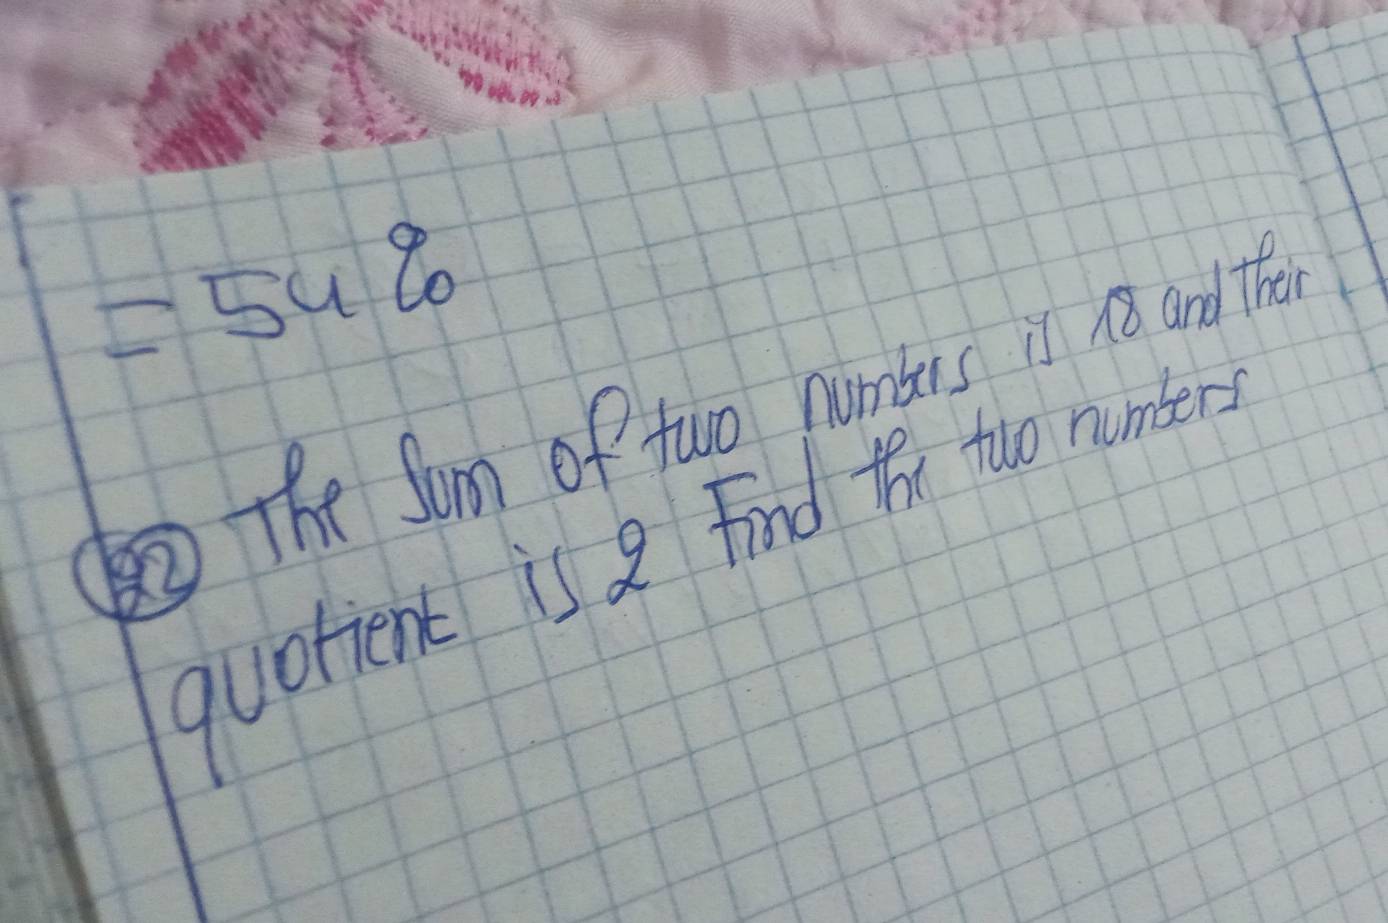 = 54%
22 The sum of two numbers is 18 and their
quotient is 2 Find the two numbers